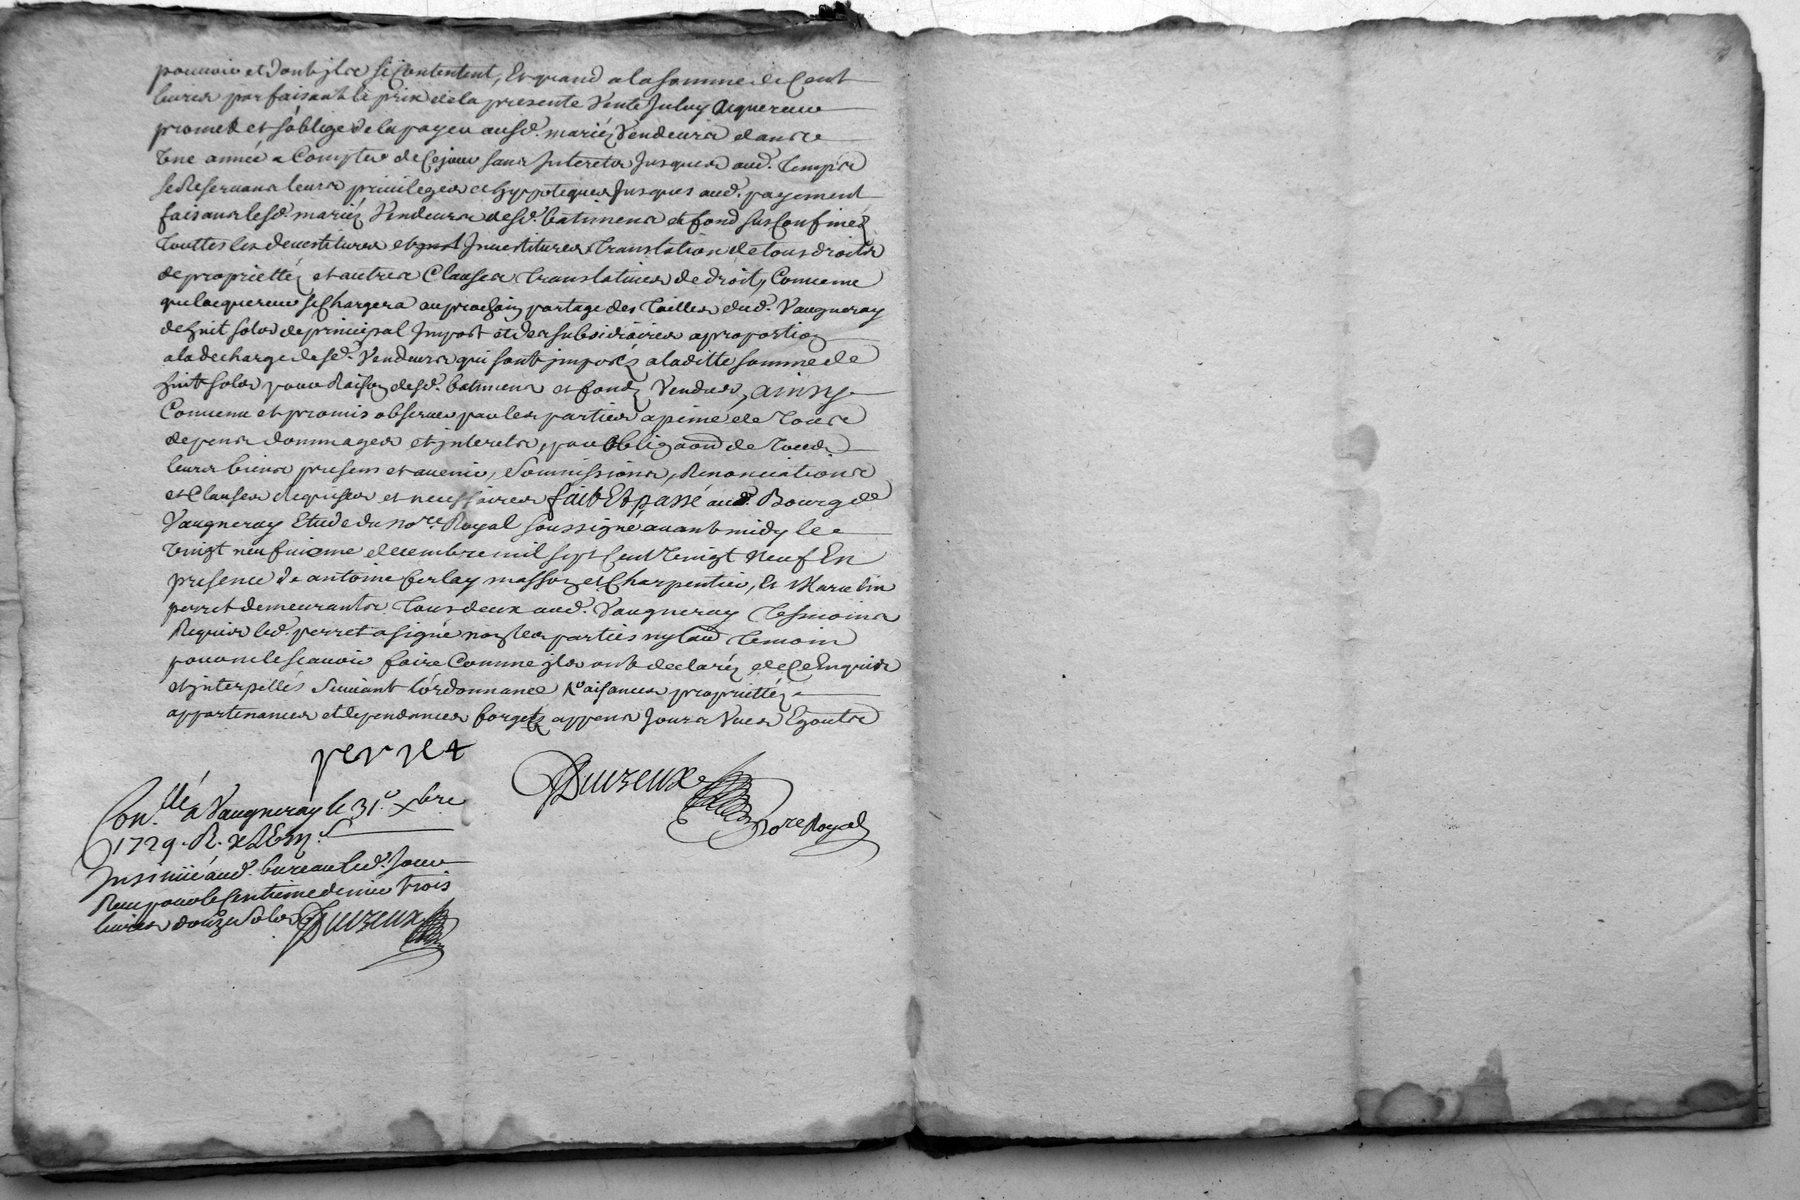 pouvoir et dont ils se contentent, Et quand a la somme de Cent
livres parfaisant le prix de la presente Vente Iceluy Acquereur
promet et soblige de la payer ausd. mariéz Vendeurs dans
Une année a Compter de Ce jour sans Interets Jusques aud. Temps
se Reservans leurs privileges et hyppoteques Jusques aud. payement
faisant lesd. mariéz Vendeurs desd. batimens et fond sus Confinéz
Touttes les devestitures et Investitures Translation de tous droits
de proprietté et autres Clauses Translatives de droit, Convenu
que lacquereur se Chargera au prochain partage des Tailles dud. Vaugneray
de huit sols de principal Import et des subsidiaires a proportion
a la decharge desd. Vendeurs qui sont imposéz a laditte somme de
huit sols pour Raison desd. batimens et fondz Vendus, ainsy
Convenu et promis observer par les parties a peine de Tous
depens dommages et interets, par obligaon de Tous
leurs biens presens et avenir, Soumissions, Renonciations
et Clauses Requises et necessaires fait Et passé aud. Bourg de
Vaugneray Etude du nore. Royal soussigné avant midy le
Vingt neufvieme decembre mil sept cent Vingt Neuf En
presence de antoine ferlay masson et Charpentier, Et
perret demeurants Tous deux aud. Vaugneray Tesmoins
Requis led. perret a signé non les parties ny laud Temoin
pour ne le scavoir faire Comme ils ont declaréz de Ce Enquis
et interpellés Suivant l'ordonnance aisances propriettéz
appartenances et dependances forgets appens Jours Vues Egouts
perret
Duvzeux
Nore Royal
Con.llé a Vaugneray le 31e. Xbre
1729. R.
Insinué aud. bureau led. Jour
Reçu pour le Centieme denier trois
livres douze sols Duvzeux